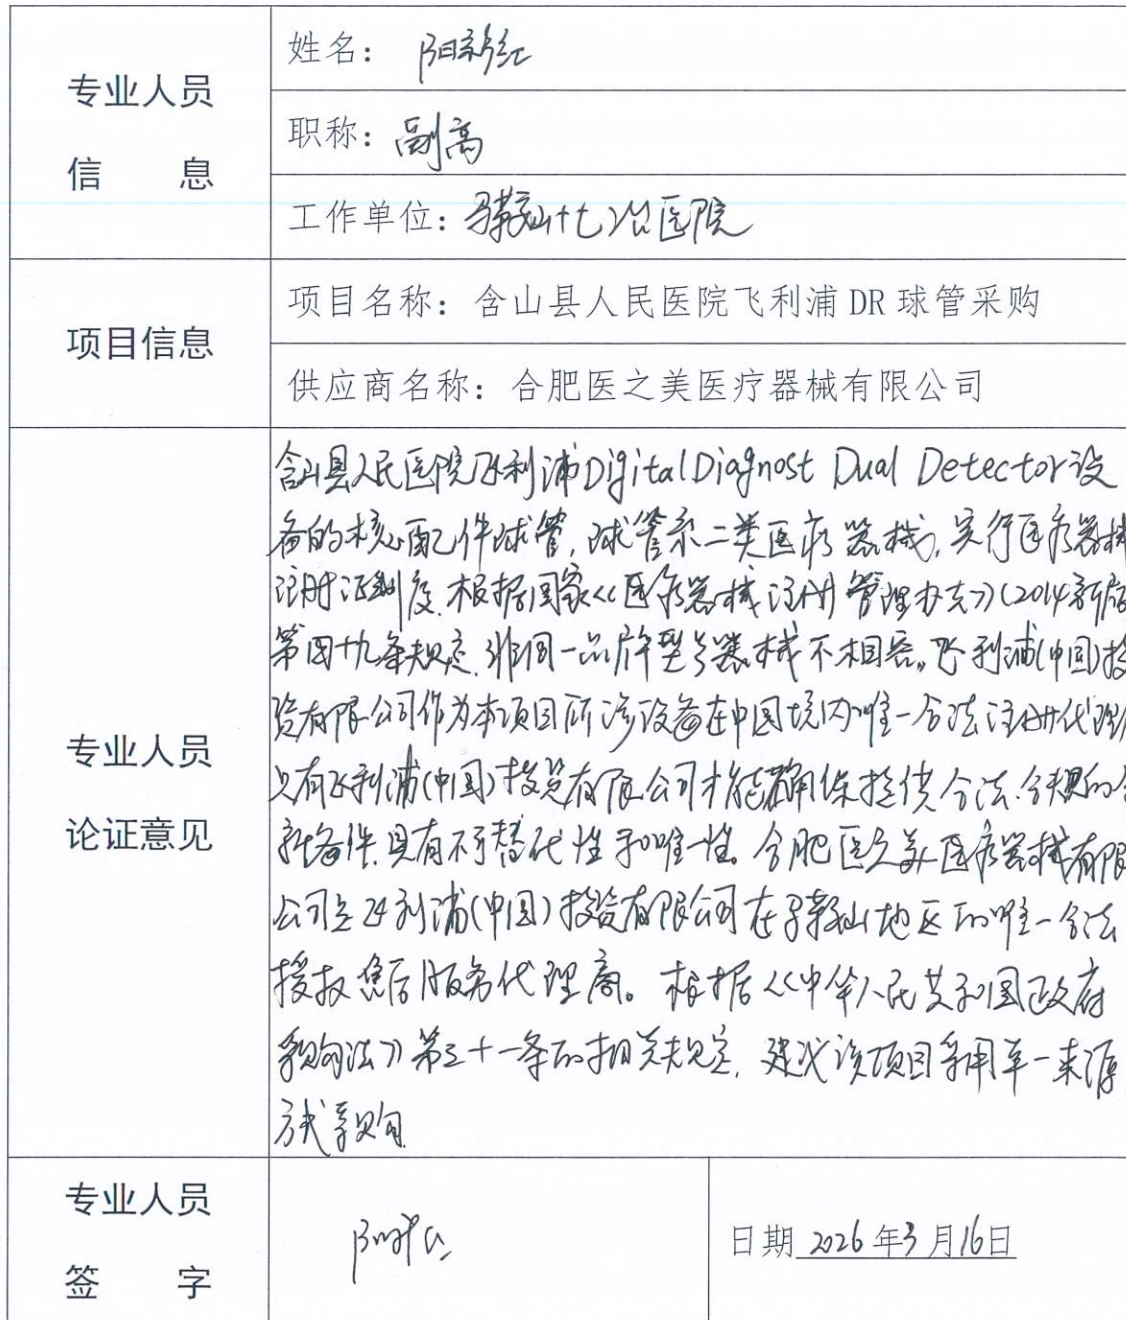 专业人员
信 息
姓名：阳彩红
职称：副高
工作单位：马鞍山十七冶医院
项目信息
项目名称：含山县人民医院飞利浦 DR 球管采购
供应商名称：合肥医之美医疗器械有限公司
专业人员
论证意见
含山县人民医院飞利浦DigitalDiagnost Dual Detector设
备的核心配件球管，球管系二类医疗器械，实行医疗器械
注册证制度，根据国家《医疗器械注册管理办法》(2014新版
第四十九条规定，非同一品牌型号器械不相容。飞利浦(中国)投
资有限公司作为本项目所涉设备在中国境内唯一合法注册代理
只有飞利浦(中国)投资有限公司才能确保提供合法、合规的全
新备件，具有不可替代性和唯一性。合肥医之美医疗器械有限
公司是飞利浦(中国)投资有限公司在马鞍山地区的唯一合法
授权售后服务代理商。根据《中华人民共和国政府
采购法》第三十一条的相关规定，建议该项目采用单一来源
方式采购
专业人员
签 字
日期 2026 年3 月16日